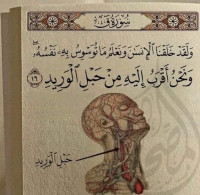 سُورَةُ ق
وَلَقَدْ خَلَقْنَا ٱلْإِنسَٰنَ وَنَعْلَمُ مَا تُوَسْوِسُ بِهِۦ نَفْسُهُۥ ۖ
وَنَحْنُ أَقْرَبُ إِلَيْهِ مِنْ حَبْلِ ٱلْوَرِيدِ ١٦
حَبْلِ ٱلْوَرِيدِ